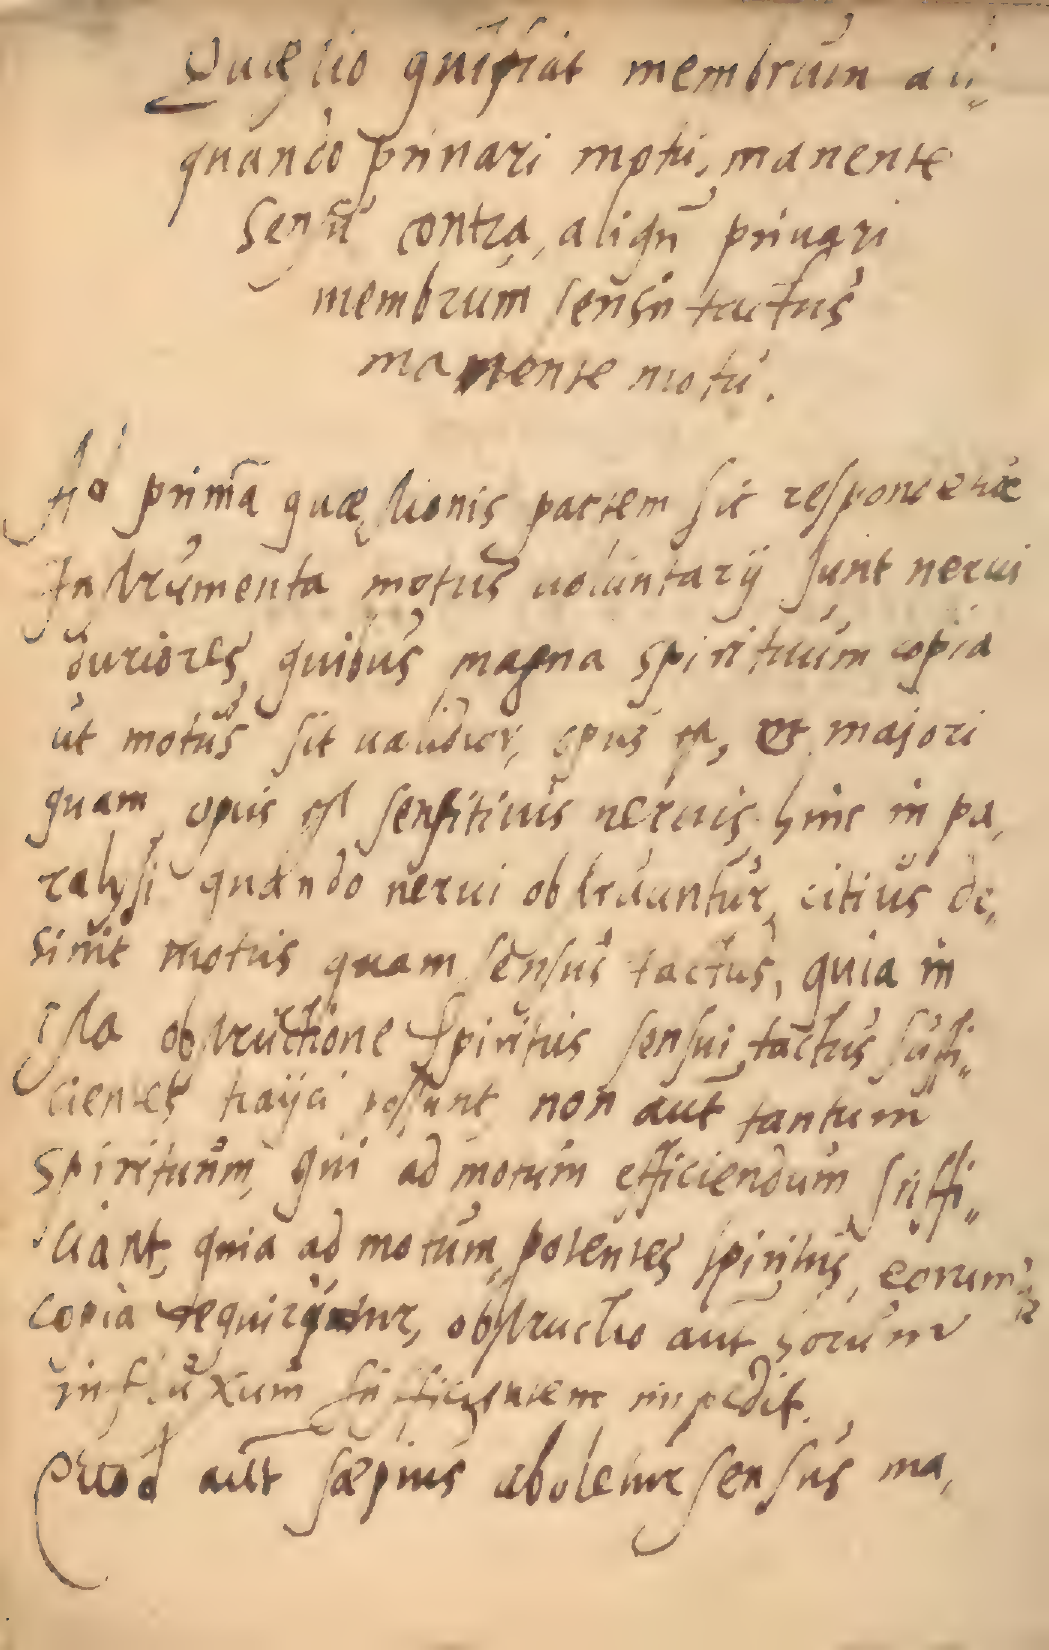 Quæstio quî fiat membrum ali,,
quando priuari motu, manente
sensu contra, aliqñ priuari
membrum sensu tactus
manente motu.
Ad primā quæstionis partem sic respondendū
Instrumenta motus uoluntarij sunt nerui
duriores, quibus magna spirituum copia
ut motus sit ualidior, opus est, et majori
quam opus est sensitiuis neruis. hinc in pa,
ralysi quando nerui obstruuntur, citius de,,
sinit motus quam sensus tactus, quia in
ista obstructione spiritus sensui tactus suffi,,
cientes traijci possunt non aut̄ tantum
spirituum, qui ad motum efficiendum suffi,,
ciant, quia ad motum, potentes spiritus, eorumq̃
copia requiruntur, obstructio aut̄ horum
influxum sufficientem impedit.
Quod aut̄ sæpius aboletur sensus ma,